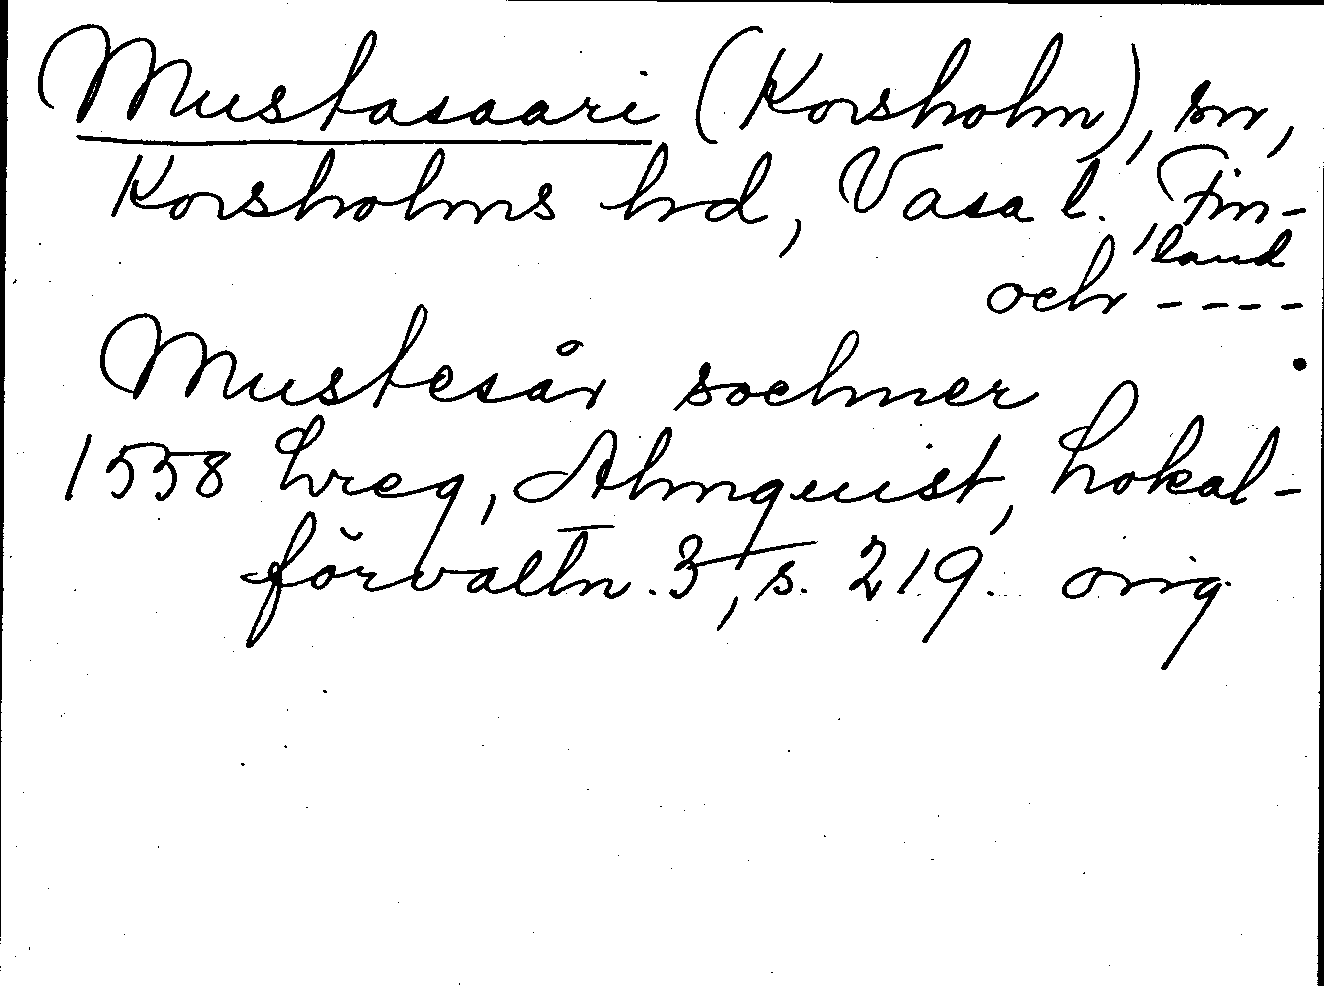 Mustasaari (Korsholm), sn,
Korsholms hd, Vasa l., Fin-
land
och ----
Mustesår sochner
1558 hreg, Almquist, Lokal-
förvaltn. 3, s. 219. orig.